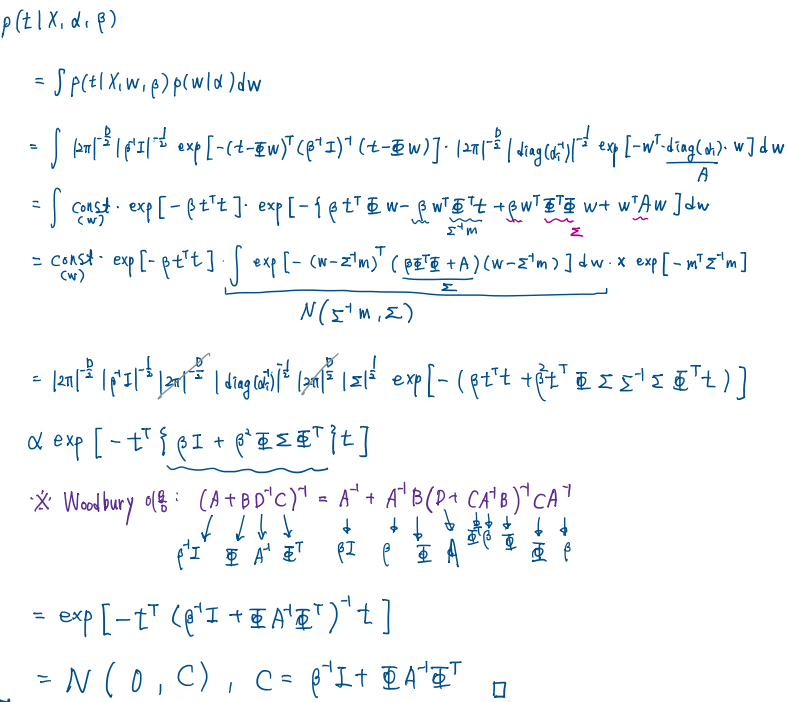 p(t|X, α, β)
= ∫ p(t|X, w, β) p(w|α) dw
= ∫ |2π|^{-D/2} |β⁻¹I|^{-1/2} exp[-(t-Φw)ᵀ(β⁻¹I)⁻¹(t-Φw)]· |2π|^{-D/2} |diag(αᵢ⁻¹)|^{-1/2} exp[-wᵀ·diag(αᵢ)·w] dw
A
= ∫ const· exp[-βtᵀt]· exp[-{βtᵀΦw - βwᵀΦᵀt + βwᵀΦᵀΦw + wᵀAw] dw
(w) Σ⁻¹m Σ
= const· exp[-βtᵀt]· ∫ exp[-(w-Σ⁻¹m)ᵀ(βΦᵀΦ + A)(w-Σ⁻¹m)] dw · × exp[-mᵀΣ⁻¹m]
(w) Σ
N(Σ⁻¹m, Σ)
= |2π|^{-D/2} |β⁻¹I|^{-1/2} |2π|^{-D/2} |diag(αᵢ⁻¹)|^{-1/2} |2π|^{D/2} |Σ|^{1/2} exp[-(βtᵀt + β²tᵀΦΣΣ⁻¹ΣΦᵀt)]
∝ exp[-tᵀ{βI + β²ΦΣΦᵀ}t]
※ Woodbury 이용: (A+BD⁻¹C)⁻¹ = A⁻¹ + A⁻¹B(D+CA⁻¹B)⁻¹CA⁻¹
β⁻¹I Φ A⁻¹ Φᵀ βI β Φ A Φᵀ β Φ Φ β
= exp[-tᵀ(β⁻¹I + ΦA⁻¹Φᵀ)⁻¹t]
= N(0, C), C = β⁻¹I + ΦA⁻¹Φᵀ □